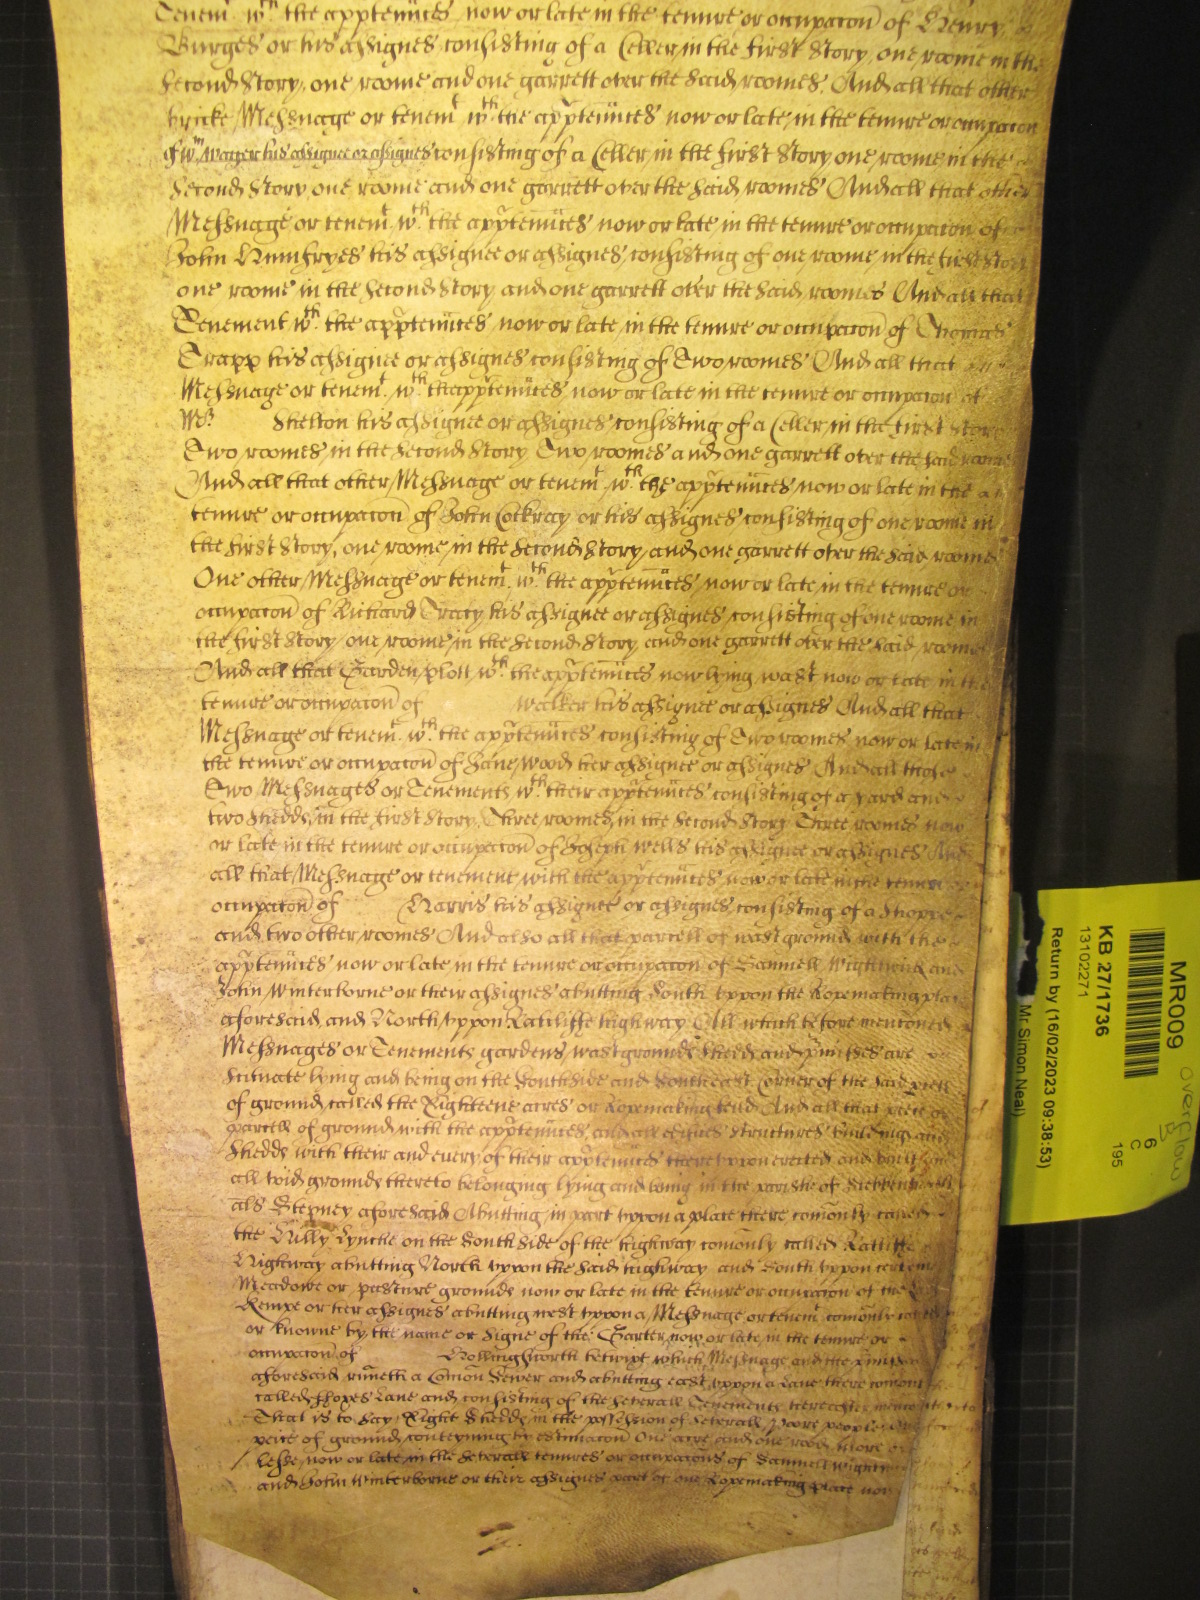 Tenemt. wth. the apptenñces now or late in the tenure or occupacoñ of Henry
Burges or his assignes consisting of a Celler in the first Story, one roome in the
Second Story, one roome and one garrett over the said roomes. And all that other
bricke Messuage or tenemt. wth. the apptenñces now or late in the tenure or occupacon
of Wm. his assignee or assignes consisting of a Celler in the first Story one roome in the
Second Story one roome and one garrett over the said roomes And all that other
Messuage or tenemt. wth. the apptenñces now or late in the tenure or occupacon of
John Humfryes his assignee or assignes consisting of one roome in the first Story
one roome in the Second Story and one garrett over the said roomes And all that
Tenement wth. the apptenñces now or late in the tenure or occupacoñ of Thomas
Trapp his assignee or assignes consisting of Two roomes And all that
Messuage or tenemt. wth. the apptenñces now or late in the tenure or occupacon of
Skelton his assignee or assignes consisting of a Celler in the first Story
Two roomes in the Second Story Two roomes and one garrett over the said roomes
And all that other Messuage or tenemt. wth. the apptenñces now or late in the
tenure or occupacoñ of John Cockray or his assignes consisting of one roome in
the first Story, one roome in the Second Story and one garrett over the said roomes
One other Messuage or tenemt. wth. the apptenñces now or late in the tenure or
occupacoñ of Richard Tracy his assignee or assignes consisting of one roome in
the first Story one roome in the Second Story and one garrett over the said roomes
And all that Garden plott wth. the apptenñces now lying wast now or late in the
tenure or occupacoñ of Walker his assignee or assignes And all that
Messuage or tenemt. wth. the apptenñces consisting of Two roomes now or late in
the tenure or occupacoñ of Jane Wood her assignee or assignes And all those
Two Messuages or Tenements wth. their apptenñces consisting of a yard and
two shedds in the first Story, Three roomes in the Second Story Three roomes now
or late in the tenure or occupacoñ of Joseph Wells his assignee or assignes And
all that Messuage or tenement with the apptenñces now or late in the tenure or
occupacoñ of Harris his assignee or assignes consisting of a Shoppe
and two other roomes And also all that parcell of wast ground with the
apptenñces now or late in the tenure or occupacon of Samuell Wightwick and
John Winterborne or their assignes abutting South uppon the Ropemaking place
aforesaid and North uppon Ratcliffe highway All which before mentioned
Messuages or Tenements gardens wast grounds Shedds and are
Scituate lying and being on the South side and South east Corner of the said peece
of ground called the Eighteene acres or Ropemaking feild And all that peice or
parcell of ground with the apptenñces and all edifices structures buildings and
Shedds with their and every of their apptenñces thereuppon erected and built and
all void grounds thereto belonging lying and being in the parish of
als Stepney aforesaid Abutting in part uppon a place there comonly called
the Lynche on the South side of the highway comonly called Ratliffe
Highway abutting North uppon the said highway and South uppon certeine
Meadowe or pasture grounds now or late in the tenure or occupacon of the
Kempe or her assignes abutting west uppon a Messuage or tenemt. comonly called
or knowne by the name or Signe of the Garter now or late in the tenure or
occupacoñ of Hollingsworth betwixt which Messuage and the
aforesaid runeth a Comon Sewer and abutting east uppon a Lane there comonly
called Lane and consisting of the severall Tenements hereafter mentioned
That is to say Eight Shedds in the possession of severall poore people One
peice of ground conteyning by estimacoñ One acre and one rood more or
lesse now or late in the severall tenures or occupacons of Samuell Wightwick
and John Winterborne or their assignes part of one Ropemaking place now
MR009
overflow
6
C
195
KB 27/1736
13102271
Return by (16/02/2023 09:38:53)
Mr Simon Neal)